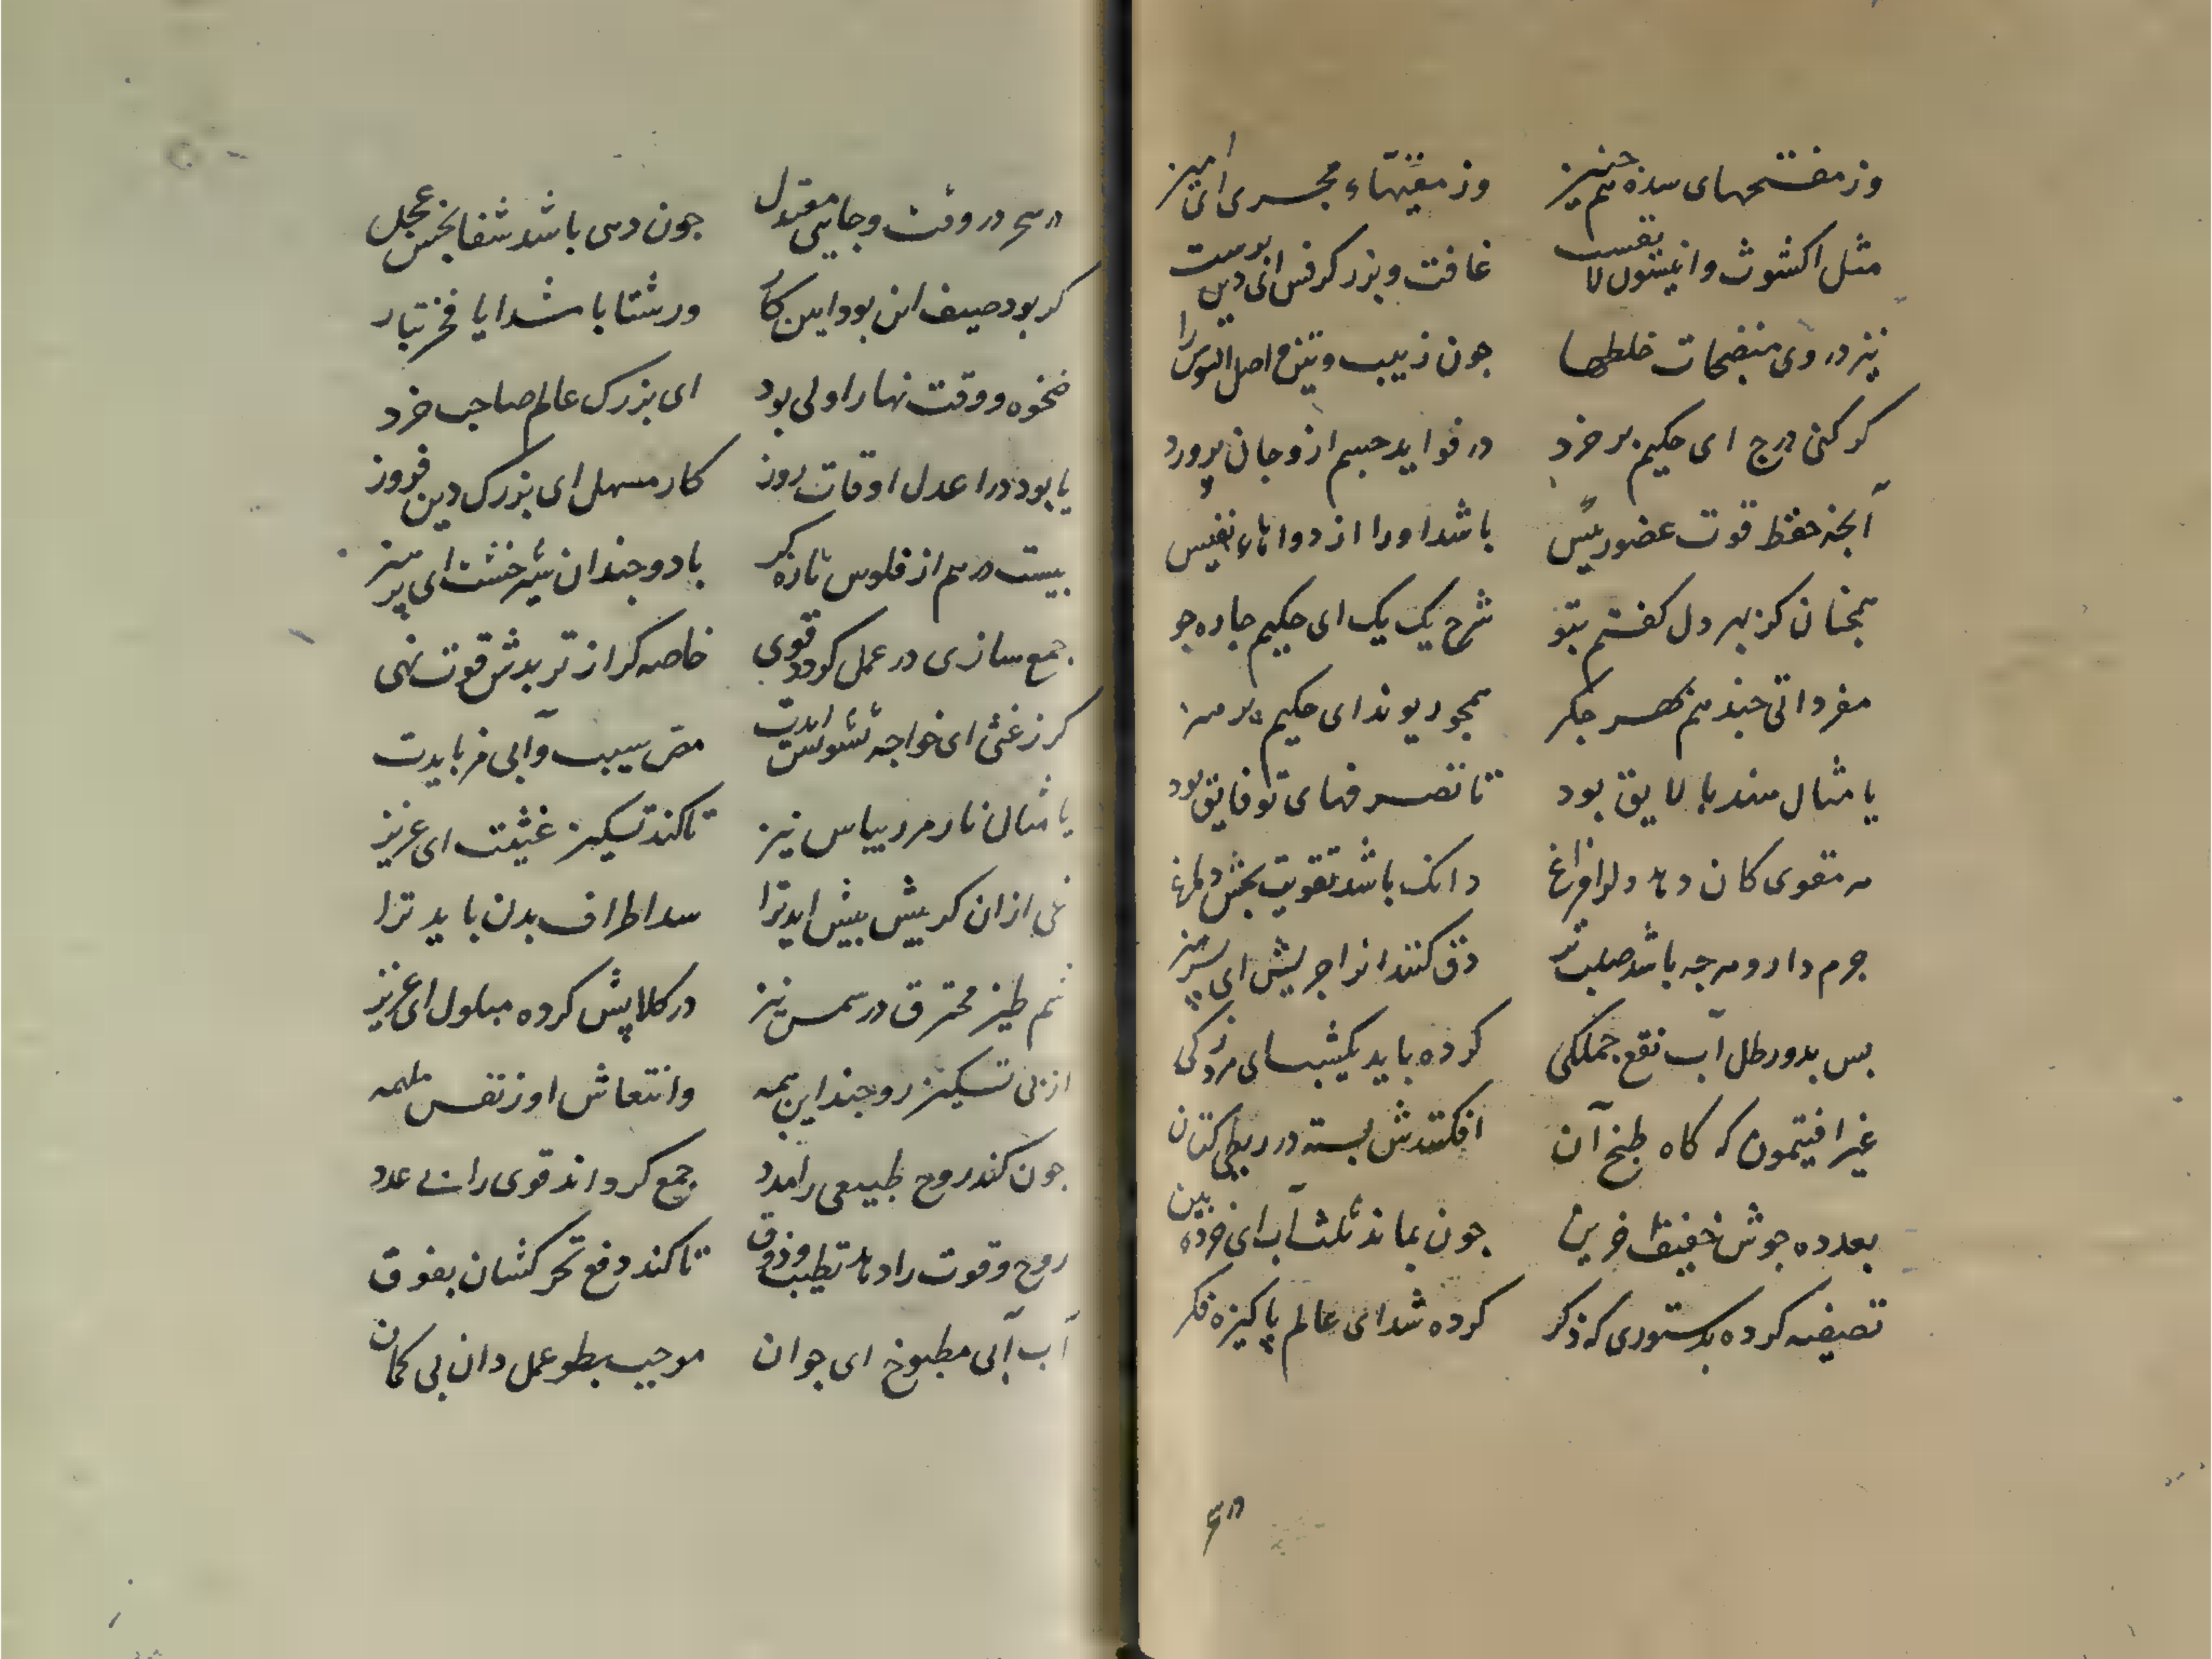 وز مفتحهای سده هم چنیز وز مقیّهاء مجری ای امیز
مثل اکشوث و انیسون لا غافت و بزر کرفس ای دین پرست
نیز در وی منضجات خلطها جون زبیب و تین و اصل السوس را
کر کنی درج ای حکیم پر خرد در فواید جسم ازو جان پرورد
آنجه حفظ قوت عضو رئیس باشد او را از دواهاء نفیس
همجنان کز بهر دل کفتم بتو شرح یک یک ای حکیم جاره جو
مفرداتی جند هم بهر جکر همجو ریوند ای حکیم پر هنر
یا مثال هندبا لایق بود تا تصرفهای تو فایق بود
هر مقوی کان دهد دل را فراغ دانک باشد تقویت بخش دماغ
جرم دارو هرجه باشد صلب تر دق کنند انرا جریش ای پر هنر
بس بدو رطل آب نقع جملکی کرده باید یکشب ای مرد زکی
غیر افیتمون که کاه طبخ آن افکنندش بسته در ربطی کتان
بعد ده جوش خفیف جون بماند ثلث آب ای خرده بین
تصفیه کرده بدستوری که ذکر کرده شد ای عالم پاکیزه فکر
در سحر در وقت و جایی معتدل جون دهی باشد شفا بخش عجل
کر بود صیف این بود این کار ور شتا باشد ایا فخر تبار
ضخوه و وقت نهار اولی بود ای بزرک عالم صاحب خرد
یا بود در اعدل اوقات روز کار مسهل ای بزرک دین فروز
بیست درهم از فلوس تازه کر با دو جندان شیر خشت ای پر هنر
جمع سازی در عمل کردد قوی خاصه کر از تربدش قوت نهی
کر ز غثی ای خواجه تشویش ایدت مص سیب و آبی فرمایدت
یا مثال نار مز ریباس نیز تا کند تسکین غثیت ای عزیز
نی ازان کر پیش بیش اید ترا سد اطراف بدن باید ترا
شم طیز محترق در سمس نیز در کلابش کرده مبلول ای عزیز
از پی تسکین روحند این همه وانتعاش او ز نفس ملهمه
جون کند روح طبیعی را مدد جمع کرداند قوی را بی عدد
روح و قوت را دهد تطییب و ذوق تا کند دفع تحرکشان بفوق
آب آبی مطبوخ ای جوان موجب بطو عمل دان بی کمان